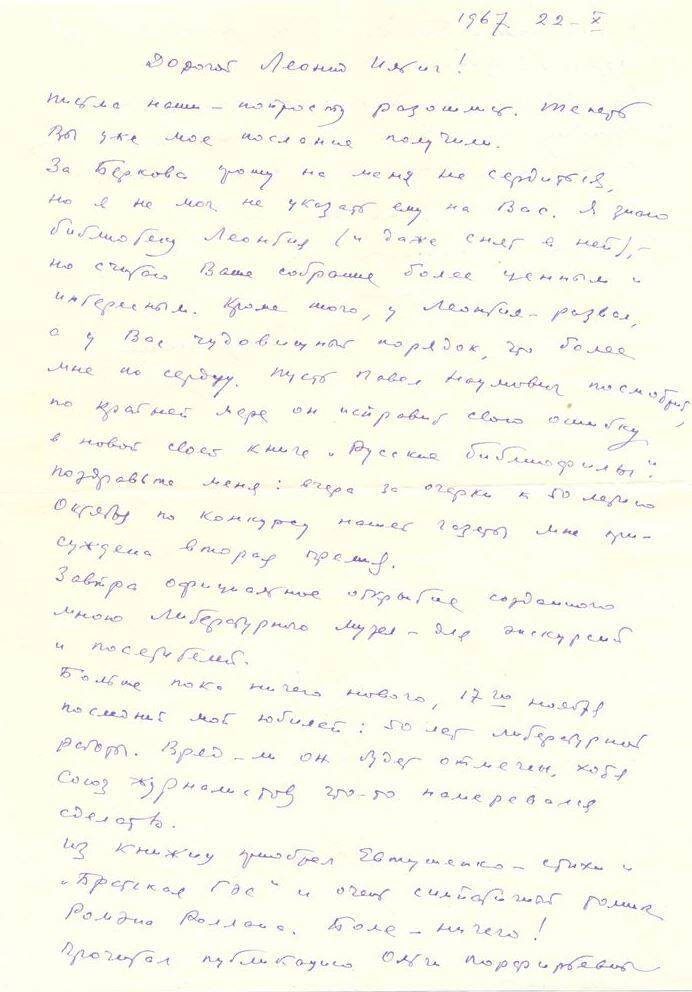 1967 22-X
Дорогой Леонид Ильич!
Письма наши – попросту разошлись. Теперь
Вы уже мое послание получили.
За Беркова прошу на меня не сердиться,
но я не мог не указать ему на Вас. Я знаю
библиотеку Леонтия (и даже снят в ней), –
но считаю Ваше собрание более ценным и
интересным. Кроме того, у Леонтия – развал,
а у Вас чудовищный порядок, что более
мне по сердцу. Пусть Павел Наумович посмотрит,
по крайней мере он исправит свою ошибку
в новой своей книге „Русские библиофилы".
Поздравьте меня: вчера за очерки к 50 летию
Октября по конкурсу нашей газеты мне при-
суждена вторая премия.
Завтра официальное открытие созданного
мною Литературного музея – для экскурсий
и посетителей.
Больше пока ничего нового, 17го ноября
последний мой юбилей: 50 лет литературной
работы. Вряд-ли он будет отмечен, хотя
Союз журналистов что-то намеревался
сделать.
Из книжиц приобрел Евтушенко – стихи и
„Братская ГЭС" и очень симпатичный томик
Ромэна Роллана. Боле – ничего!
Прочитал публикацию Ольги Порфирьевны